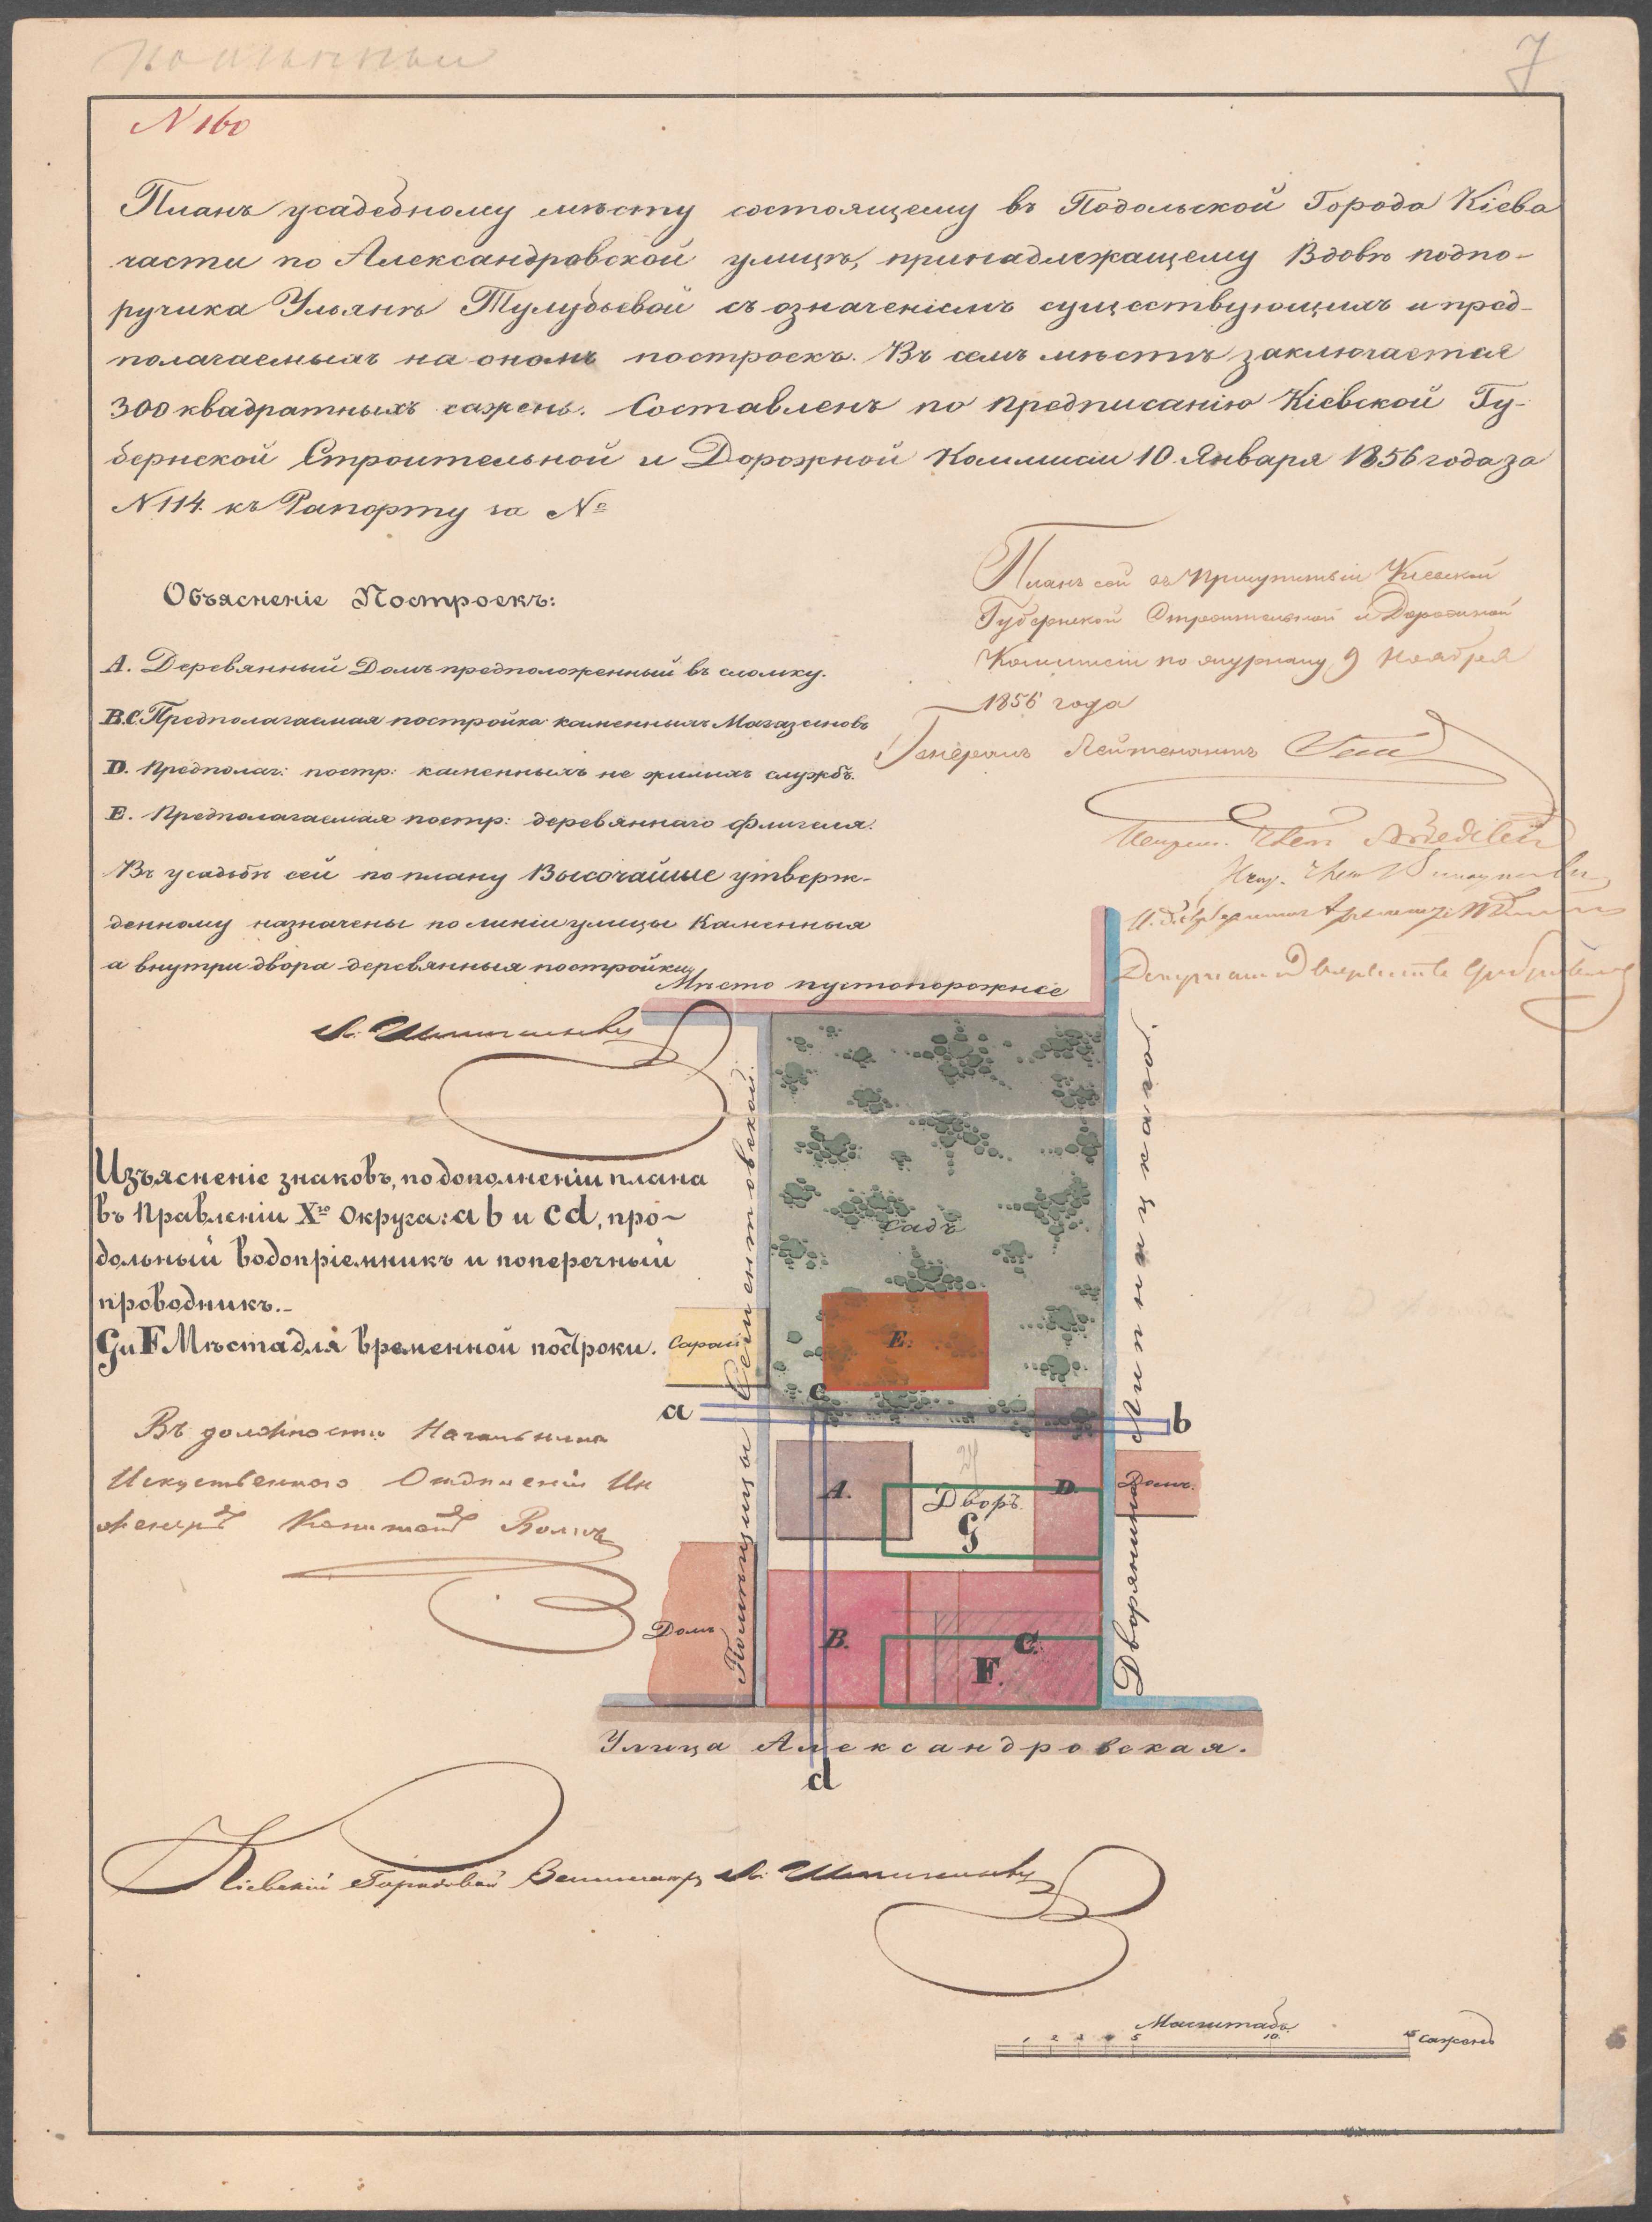 7
N 160
Планъ усадебному мѣсту состоящему въ Подольской Города Кіева
части по Александровской улицѣ, принадлежащему Вдовѣ подпо-
ручика Ульянѣ Тулубьевой съ означеніемъ существующихъ и пред-
полагаемыхъ на ономъ построекъ. Въ семъ мѣстѣ заключается
300 квадратныхъ сажень. Составленъ по предписанію Кіевской Гу-
бернской Строительной и Дорожной Коммисіи 10 Января 1856 года за
N 114. къ Рапорту за №
Планъ сей въ Присутствіи Кіевской
Губернской Строительной и Дорожной
Коммисіи по журналу 9 Ноября
1856 года
Генералъ Лейтенантъ
Объясненіе Построекъ:
A. Деревянный Домъ предположенный въ сломку.
B.C. Предполагаемая постройка каменныхъ Магазиновъ
D. Предполаг: постр: каменныхъ не жилыхъ службъ.
E. Предполагаемая постр: деревяннаго флигеля.
Въ усадьбѣ сей по плану Высочайше утверж-
денному назначены по линіи улицы Каменныя
а внутри двора деревянныя постройки
Мѣсто пустопорожнее
Изъясненіе знаковъ, по дополненіи плана
въ Правленіи Xго Округа: a b и c d, про-
дольный водопріемникъ и поперечный
проводникъ.-
G и F Мѣста для временной постройки.
Въ должности Начальника
Искуственнаго Отдѣленія Ин
женеръ Капитанъ
Помѣщицы
Дворянина Липницкаго.
Садъ
Сарай
E.
c
a
b
A.
Дворъ.
G
D.
Домъ.
Домъ
B.
C.
F.
Улица Александровская.
d
Кіевскій Городовой Землемѣръ
Масштабъ
1 2 3 4 5 10 15 сажень